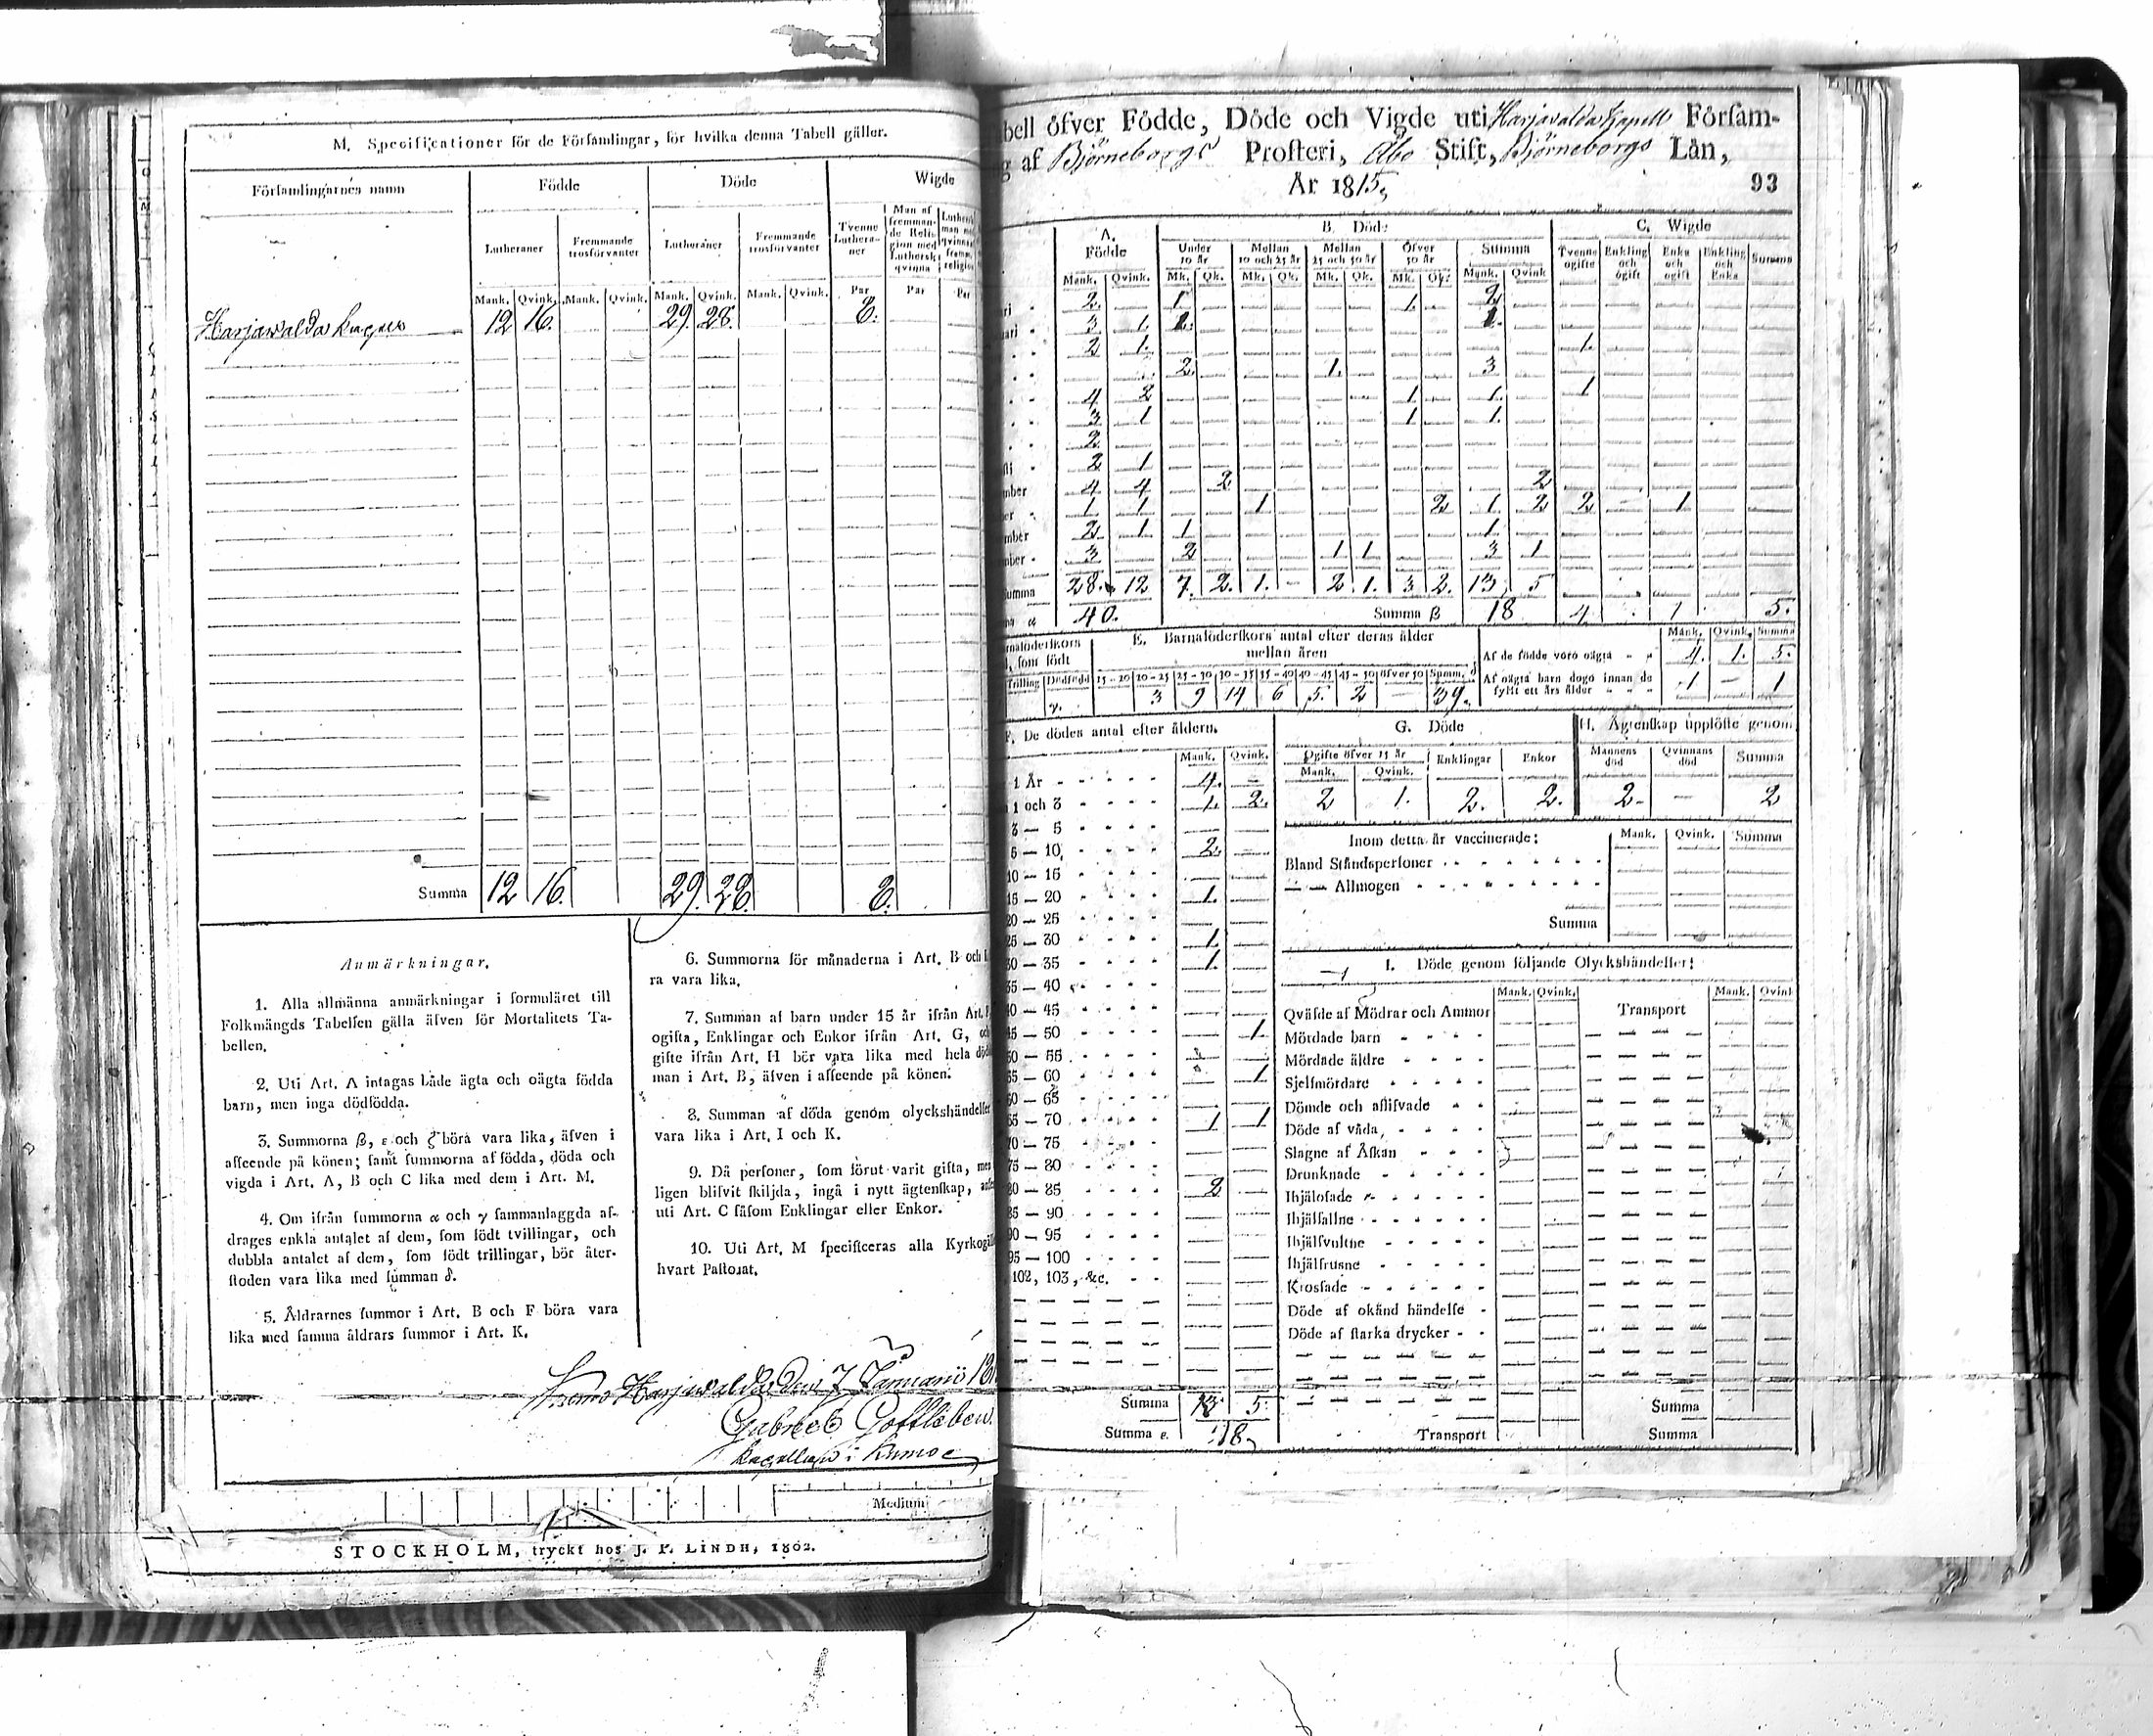 M. Specificationer för de Församlingar, för hvilka denna Tabell gäller.
Församlingarnes namn
Födde
Döde
Wigde
Lutheraner
Fremmande trosförvanter
Lutheraner
Fremmande trosförvanter
Tvenne Lutheraner
Man af fremmande Religion med Luthersk qvinna
Mank. Qvink. Mank. Qvink. Mank. Qvink. Mank. Qvink. Par Par Par
Harjawalda 12 16. 29. 28. 8.
Summa 12 16. 29. 28. 8.
Anmärkningar.
1. Alla allmänna anmärkningar i formuläret till
Folkmängds Tabellen gälla äfven för Mortalitets Ta-
bellen.
2. Uti Art. A intagas både ägta och oägta födda
barn, men inga dödfödda.
3. Summorna β, ε och ζ böra vara lika, äfven i
afseende på könen; samt summorna af födda, döda och
vigda i Art. A, B och C lika med dem i Art. M.
4. Om ifrån summorna α och γ sammanlaggda af-
drages enkla antalet af dem, som födt tvillingar, och
dubbla antalet af dem, som födt trillingar, bör åter-
stoden vara lika med summan δ.
5. Åldrarnes summor i Art. B och F böra vara
lika med samma åldrars summor i Art. K.
6. Summorna för månaderna i Art. B och
ra vara lika.
7. Summan af barn under 15 år ifrån Art.
ogifta, Enklingar och Enkor ifrån Art. G, och
gifte ifrån Art. H bör vara lika med hela
man i Art. B, äfven i afseende på könen.
8. Summan af döda genom olyckshändelser
vara lika i Art. I och K.
9. Då personer, som förut varit gifta, men
ligen blifvit skiljda, ingå i nytt ägtenskap,
uti Art. C såsom Enklingar eller Enkor.
10. Uti Art. M specificeras alla
hvart Pastorat.
Harjawalda den 7 Januarii
Gabriel Gottleben
i Kumo
Medium
STOCKHOLM, tryckt hos J. P. LINDH, 1802.
bell öfver Födde, Döde och Vigde uti Harjavalda Capell Församl-
g af Björneborgs Prosteri, Åbo Stift, Björneborgs Län,
År 1815,
93
A. Födde
B. Döde
C. Wigde
Under 10 år
Mellan 10 och 25 år
Mellan 25 och 50 år
Öfver 50 år
Summa
Tvenne ogifte
Enkling och ogift
Enka och ogift
Enkling och Enka
Summa
Mank. Qvink. Mk. Qk. Mk. Qk. Mk. Qk. Mk. Qk. Mank. Qvink
2. 1 1. 2
3 1. 1. 1.
2 1. 1.
2. 1. 3
4 2 1. 1. 1
3 1 1 1.
2
2 1
mber 4 4 2 2
1 1 1 2 1. 2 2 1
mber 2 1 1 1
mber 3 2 1 1 3 1
Summa 28. 12 7. 2. 1. - 2. 1. 3 2. 13 5
α 40. Summa β 18 4. 1 5.
som födt
Trilling Dödfödd
E. Barnaföderskors antal efter deras ålder
mellan åren
15-20 20-25 25-30 30-35 35-40 40-45 45-50 öfver 50 Summ.
3 9 14 6 5. 2 — 39.
Mank. Qvink. Summa
Af de födde voro oägta 4. 1. 5.
Af oägta barn dogo innan de
fyllt ett års ålder 1 — 1
F. De dödes antal efter åldern.
Mank. Qvink.
1 År 4. —
1 och 3 1. 2.
3 — 5
5 — 10 2.
10 — 15
15 — 20 1.
20 — 25
25 — 30 1.
30 — 35 1.
35 — 40
40 — 45
45 — 50 1
50 — 55
55 — 60 1
60 — 65
65 — 70 1 1
70 — 75
75 — 80
80 — 85 2
85 — 90
90 — 95
95 — 100
102, 103, &c.
Summa 13 5
Summa ε. 18.
G. Döde
Ogifte öfver 15 år
Enklingar
Enkor
Mank. Qvink.
2 1. 2. 2.
H. Ägtenskap upplöste genom
Mannens död
Qvinnans död
Summa
2 — 2
Inom detta år vaccinerade:
Mank. Qvink. Summa
Bland Ståndspersoner
— — Allmogen
Summa
I. Döde genom följande Olyckshändelser:
Mank. Qvink.
Transport
Mank.
Qväfde af Mödrar och Ammor
Mördade barn
Mördade äldre
Sjelfmördare
Dömde och aflifvade
Döde af våda
Slagne af Åskan
Drunknade
Ihjälosade
Ihjälfallne
Ihjälsvultne
Ihjälfrusne
Krossade
Döde af okänd händelse
Döde af starka drycker
Summa
Transport
Summa